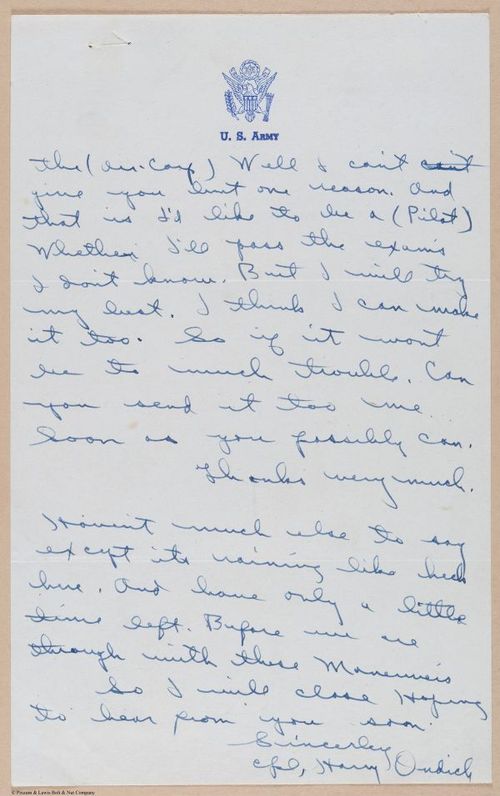 U. S. ARMY
the (Air. Corp) Well I can't can't
give you but one reason. And
that is I'd like to be a (Pilot)
Whether I'll pass the exams
I don't know. But I will try
my best. I think I can make
it too. So if it wont
be to much trouble. Can
you send it too me
soon as you possibly can.
Thanks very much.
Haven't much else to say
except its raining like heck
here. And have only a little
time left. Before we are
through with these Manuevers
So I will close Hoping
to hear from you soon.
Sincerley
Cpl, Harry Ondich
© Possum & Lewis Bolt & Nut Company